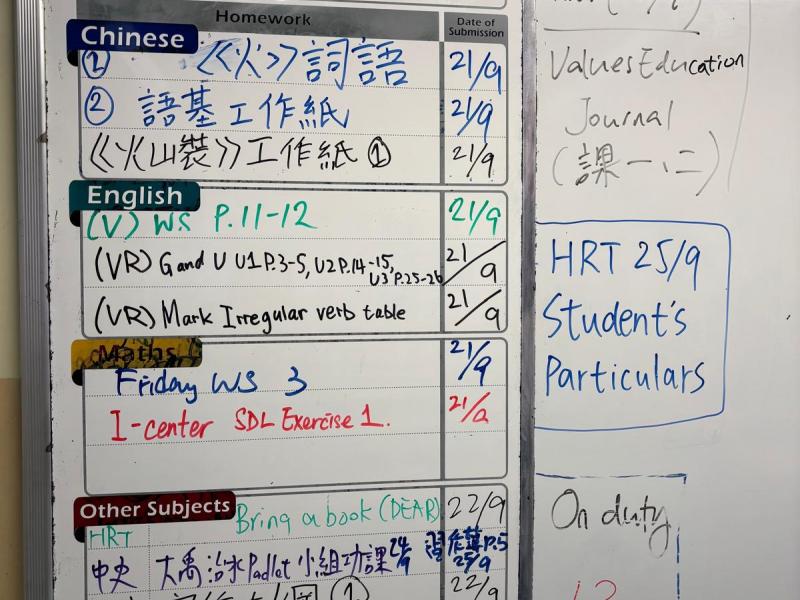 Homework
Date of Submission
Chinese
① 《火》詞語 21/9
② 語基工作紙 21/9
《火山裝》工作紙① 21/9
English
(V) WS P.11-12 21/9
(VR) G and U U1 P.3-5, U2 P.14-15, U3 P.25-26 21/9
(VR) Mark Irregular verb table 21/9
Maths
Friday WS 3 21/9
I-center SDL Exercise 1. 21/9
Other Subjects
HRT Bring a book (DEAR) 22/9
中史 大禹治水Padlet小組功課 24/9 P.5 25/9
22/9
Values Education
Journal
(課一、二)
HRT 25/9
Student's
Particulars
On duty